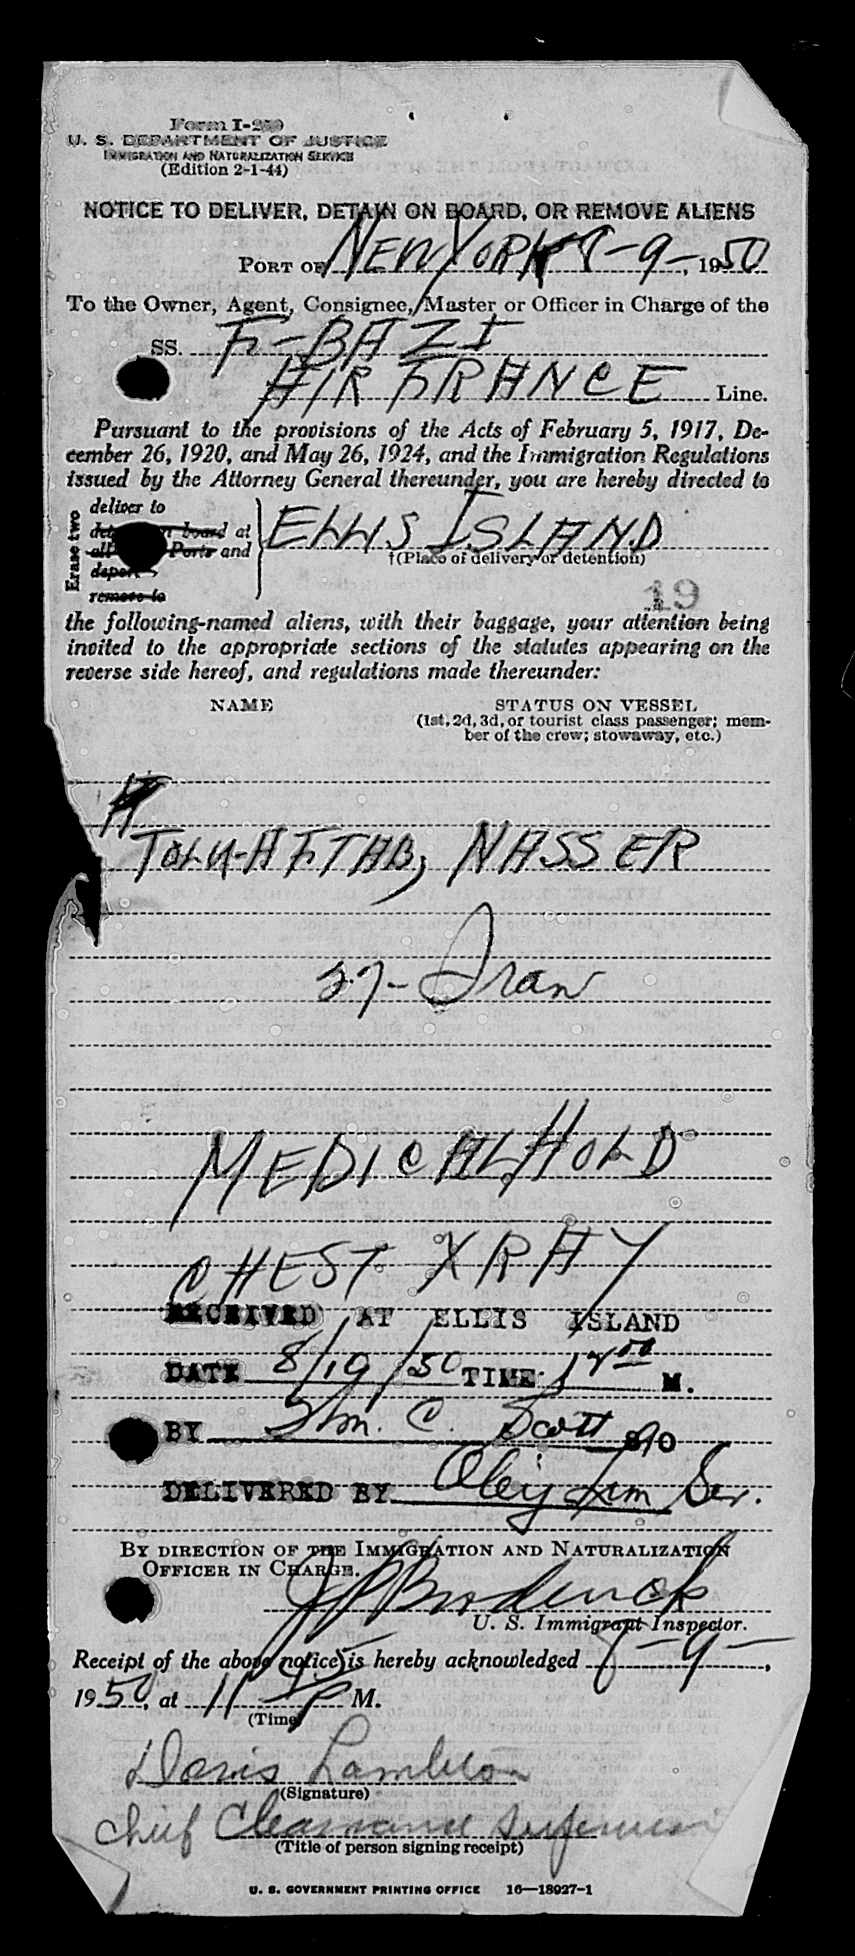 Form I-259
U. S. DEPARTMENT OF JUSTICE
IMMIGRATION AND NATURALIZATION SERVICE
(Edition 2-1-44)
NOTICE TO DELIVER, DETAIN ON BOARD, OR REMOVE ALIENS
PORT OF NEW YORK 8-9-, 1950
To the Owner, Agent, Consignee, Master or Officer in Charge of the
SS. F-BAZI
AIR FRANCE Line.
Pursuant to the provisions of the Acts of February 5, 1917, De-
cember 26, 1920, and May 26, 1924, and the Immigration Regulations
issued by the Attorney General thereunder, you are hereby directed to
Erase two
deliver to
board at
all Ports and
remove to
ELLIS ISLAND
†(Place of delivery or detention)
19
the following-named aliens, with their baggage, your attention being
invited to the appropriate sections of the statutes appearing on the
reverse side hereof, and regulations made thereunder:
NAME STATUS ON VESSEL
(1st, 2d, 3d, or tourist class passenger; mem-
ber of the crew; stowaway, etc.)
TOLU-AFTAB, NASSER
27- Iran
MEDICAL HOLD
CHEST XRAY
RECEIVED AT ELLIS ISLAND
DATE 8/10/50 TIME 12 00 M.
BY Wm. C. Scott
DELIVERED BY Ser.
BY DIRECTION OF THE IMMIGRATION AND NATURALIZATION
OFFICER IN CHARGE.
Broderick
U. S. Immigrant Inspector.
Receipt of the above notice is hereby acknowledged 8-9-,
1950, at 11 45 P M.
(Time)
Doris
(Signature)
Chief Clearance
(Title of person signing receipt)
U. S. GOVERNMENT PRINTING OFFICE 16—18027-1